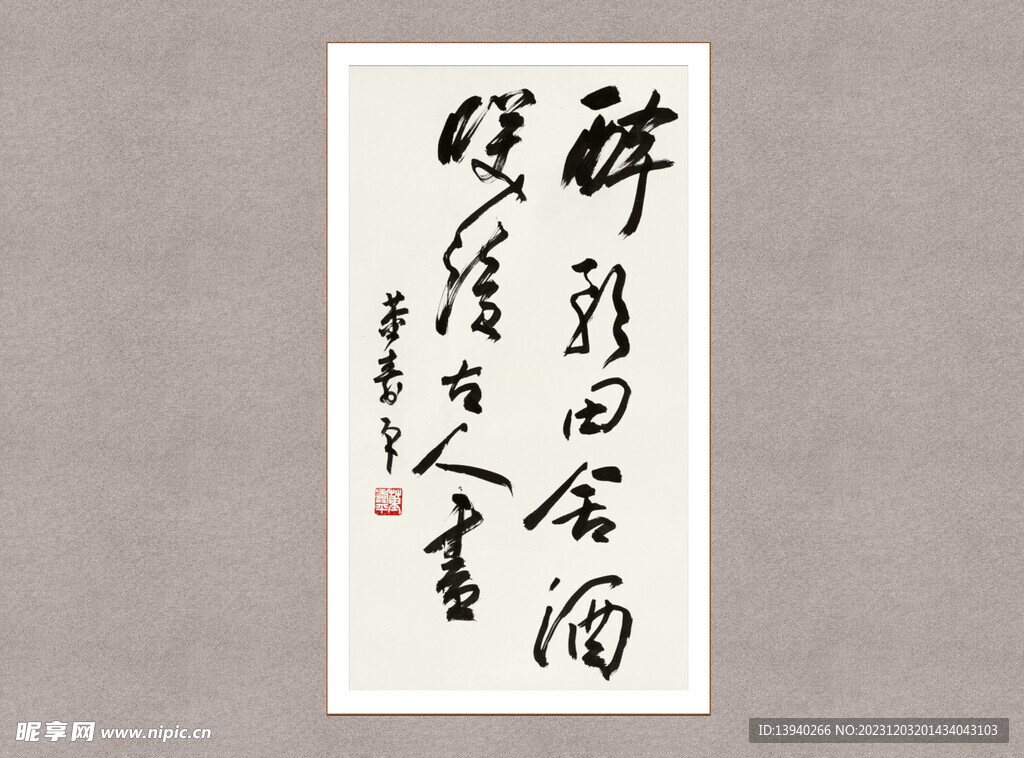 醉歌田舍酒
咲讀古人書
董寿平
昵享网 www.nipic.cn
ID:13940266 NO:20231203201434043103